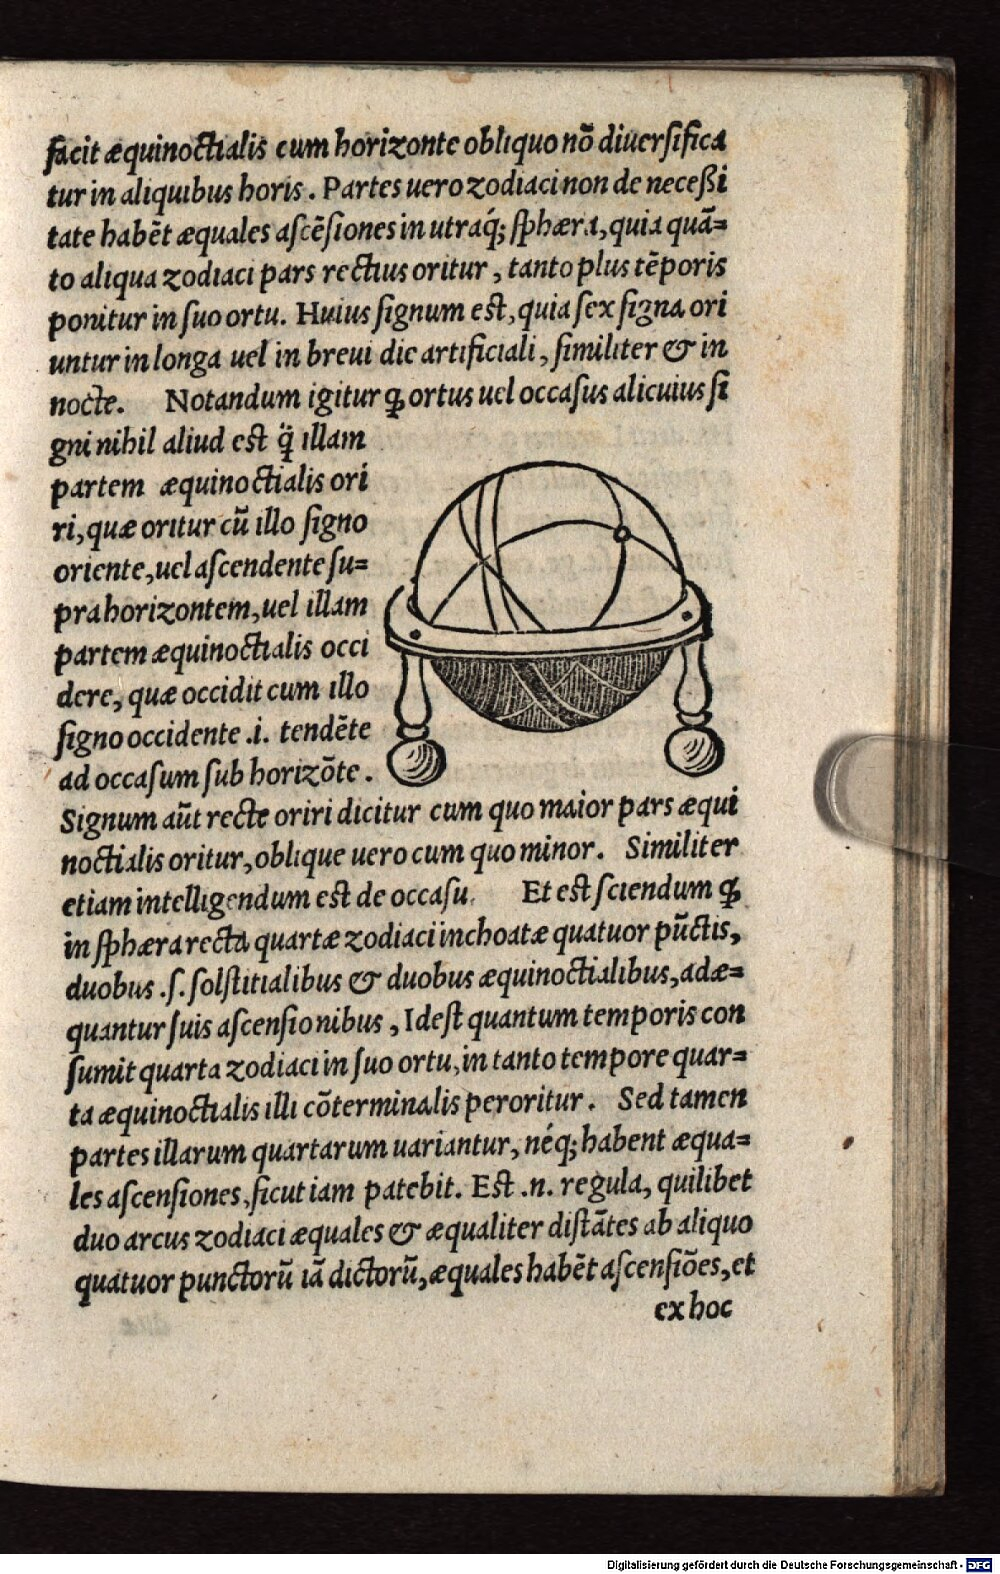 facit æquinoctialis cum horizonte obliquo nō diuerſifica
tur in aliquibus horis. Partes uero zodiaci non de neceßi
tate habēt æquales aſcēſiones in utraq́; ſphæra, quia quā=
to aliqua zodiaci pars rectius oritur, tanto plus tēporis
ponitur in ſuo ortu. Huius ſignum eſt, quia ſex ſigna ori
untur in longa uel in breui die artificiali, ſimiliter & in
nocte. Notandum igitur ꝙ ortus uel occaſus alicuius ſi
gni nihil aliud eſt q̈ illam
partem æquinoctialis ori
ri, quæ oritur cū illo ſigno
oriente, uel aſcendente ſu=
pra horizontem, uel illam
partem æquinoctialis occi
dere, quæ occidit cum illo
ſigno occidente .i. tendēte
ad occaſum ſub horizōte.
Signum aūt recte oriri dicitur cum quo maior pars æqui
noctialis oritur, oblique uero cum quo minor. Similiter
etiam intelligendum eſt de occaſu. Et eſt ſciendum ꝙ
in ſphæra recta quartæ zodiaci inchoatæ quatuor pūctis,
duobus .ſ. ſolſtitialibus & duobus æquinoctialibus, adæ=
quantur ſuis aſcenſionibus, Ideſt quantum temporis con
ſumit quarta zodiaci in ſuo ortu, in tanto tempore quar=
ta æquinoctialis illi cōterminalis peroritur. Sed tamen
partes illarum quartarum uariantur, néq; habent æqua=
les aſcenſiones, ſicut iam patebit. Eſt .n. regula, quilibet
duo arcus zodiaci æquales & æqualiter diſtātes ab aliquo
quatuor punctorū iā dictorū, æquales habēt aſcenſiões, et
ex hoc
Digitalisierung gefördert durch die Deutsche Forschungsgemeinschaft - DFG